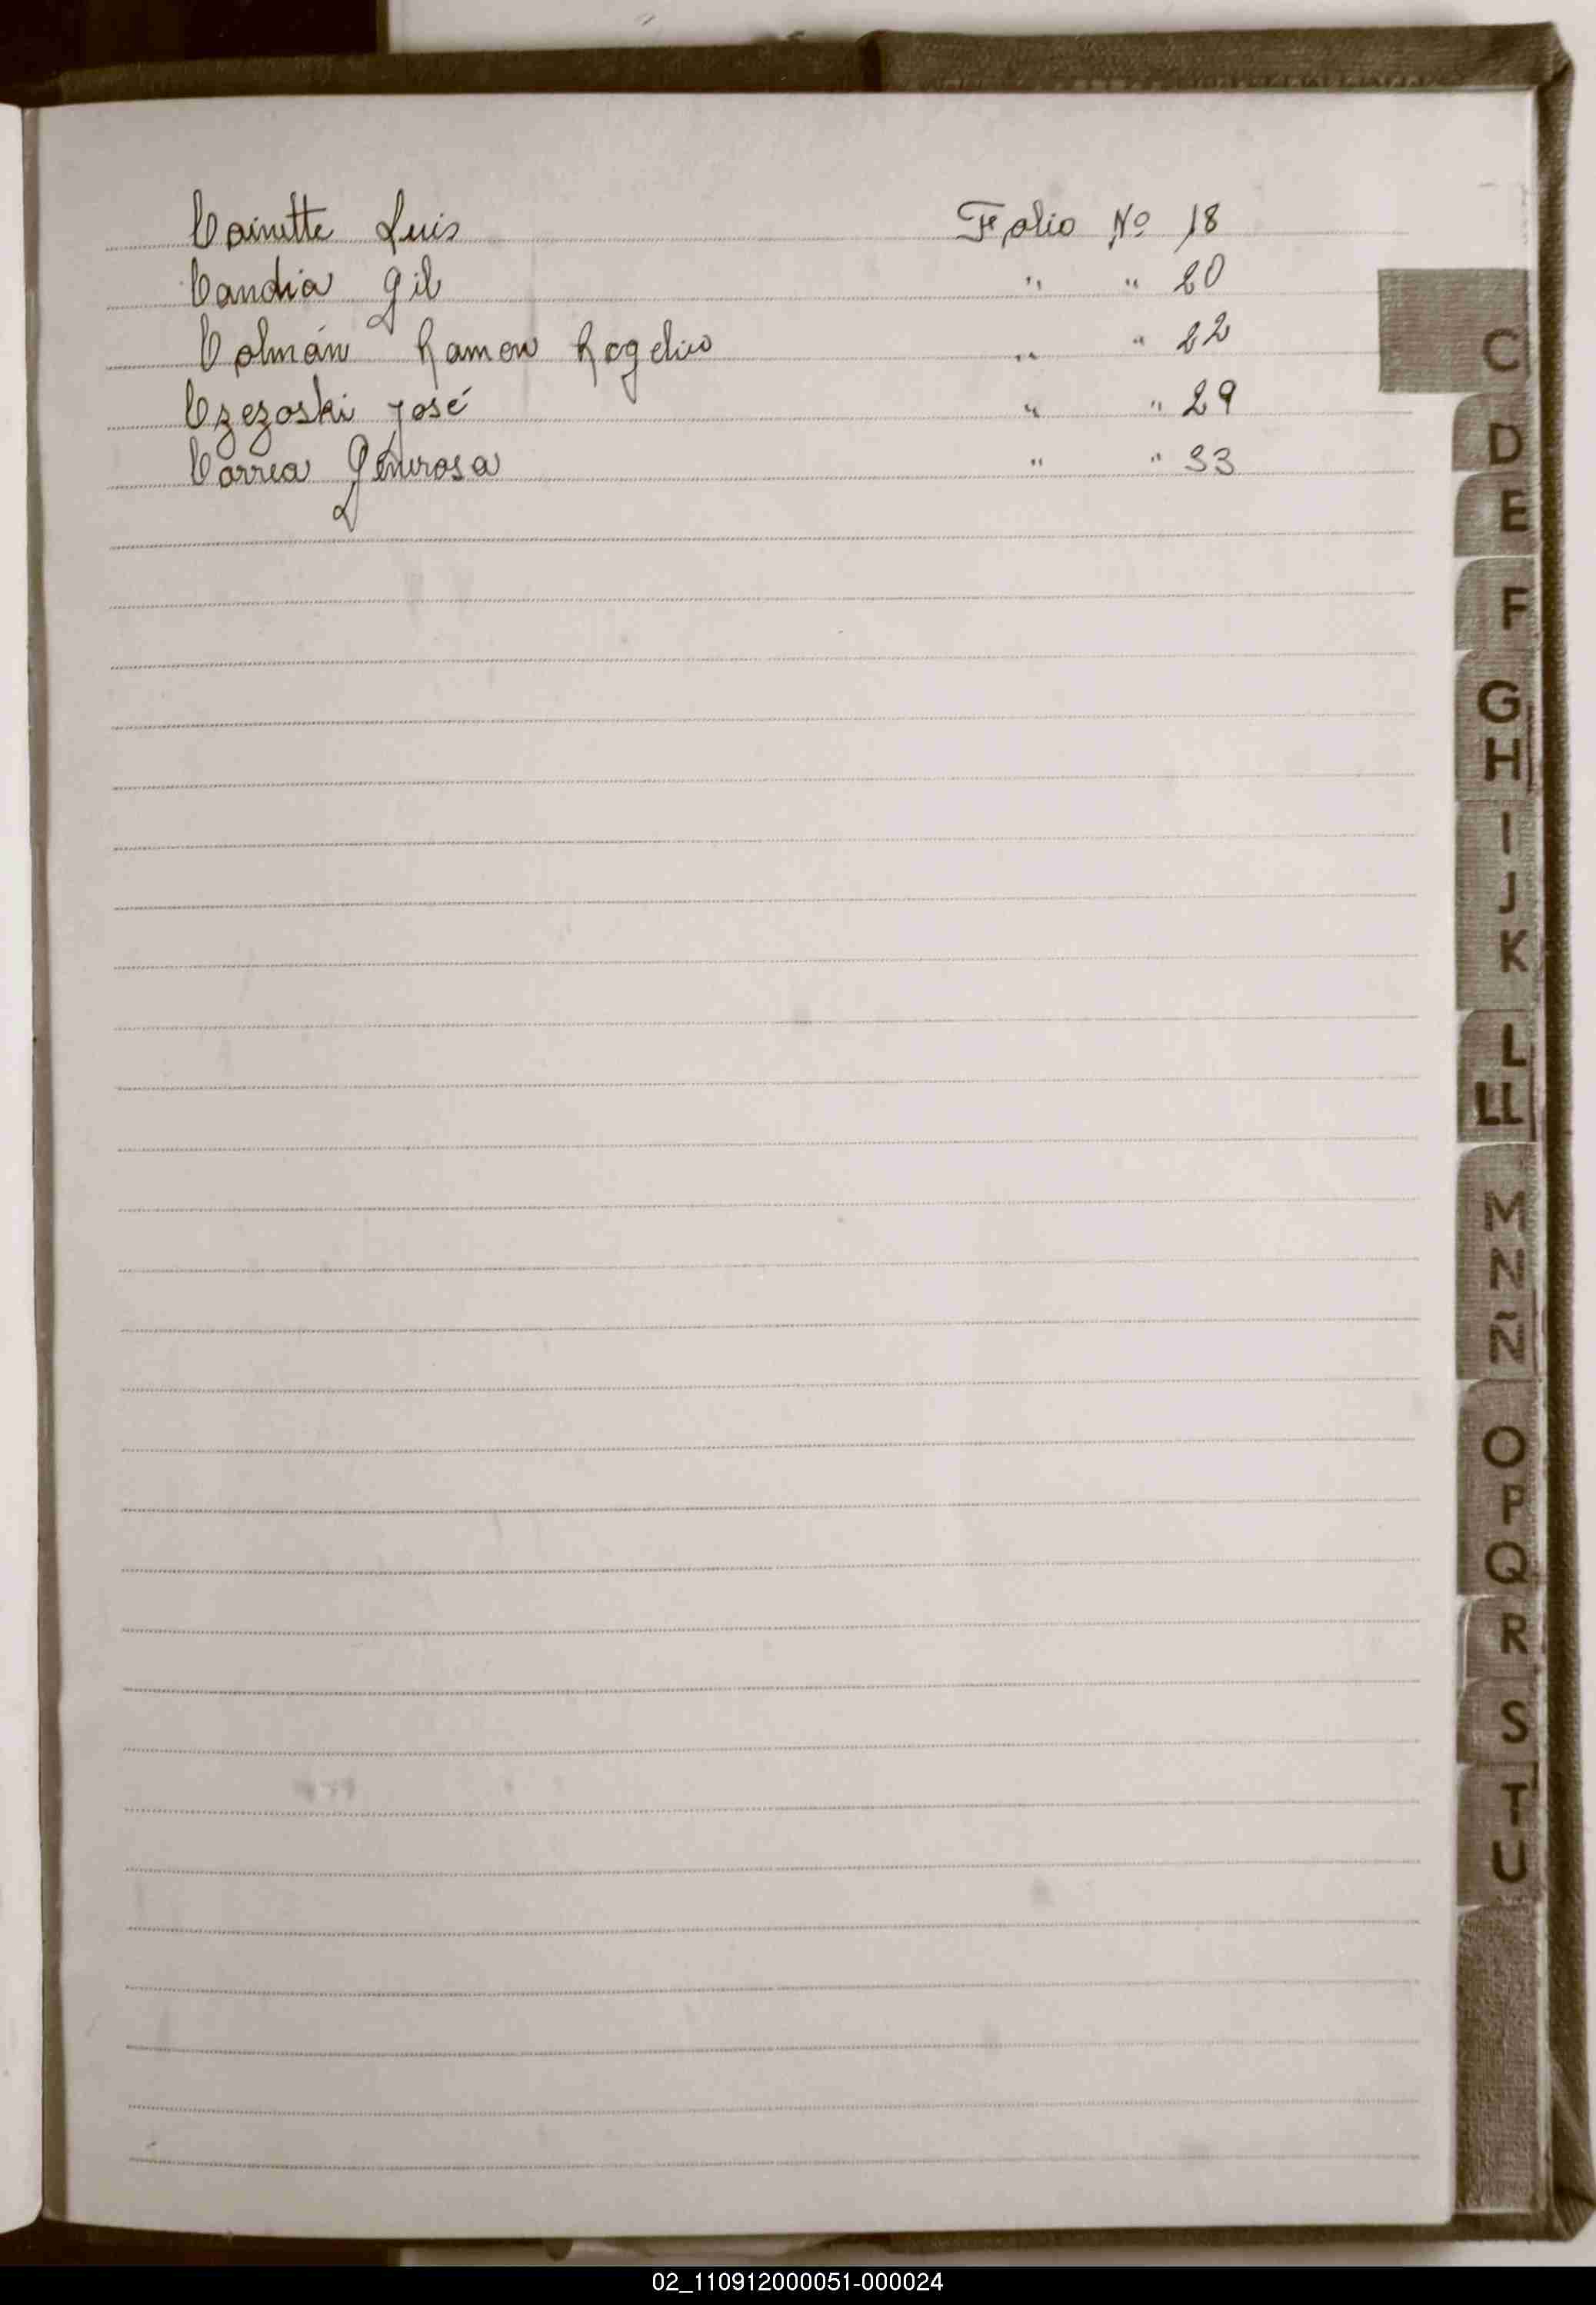 Coinette Luis Folio Nº 18
Candia Gil " " 20
Colmán Ramon Rogelio " " 22
Czezoski José " " 29
Correa Generosa " " 33
C
D
E
F
G
H
I
J
K
L
LL
M
N
Ñ
O
P
Q
R
S
T
U
02_110912000051-000024